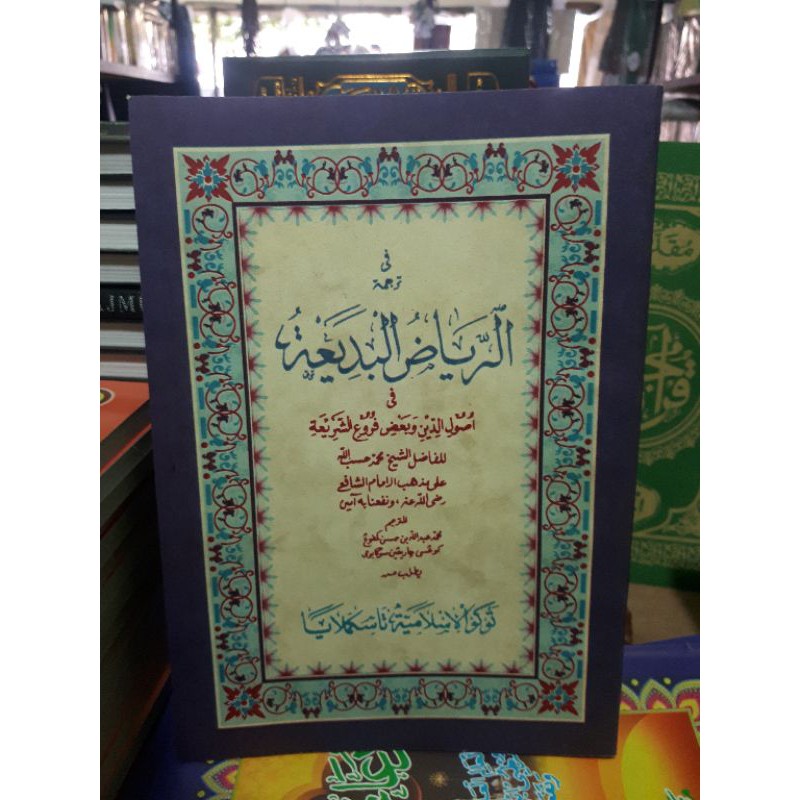 فى
ترجمة
الرِّيَاضُ الْبَدِيْعَةُ
فى
اُصُوْلِ الدِّيْنِ وَبَعْضِ فُرُوْعِ الشَّرِيْعَةِ
للفاضل الشيخ محمد حسب الله
على مذهب الامام الشافعى
رضى الله عنه، ونفعنا به آمين
للمترجم
محمد عبدالله بن حسن
يطلب من
توكو الاسلامية تاسكملايا
AJMU